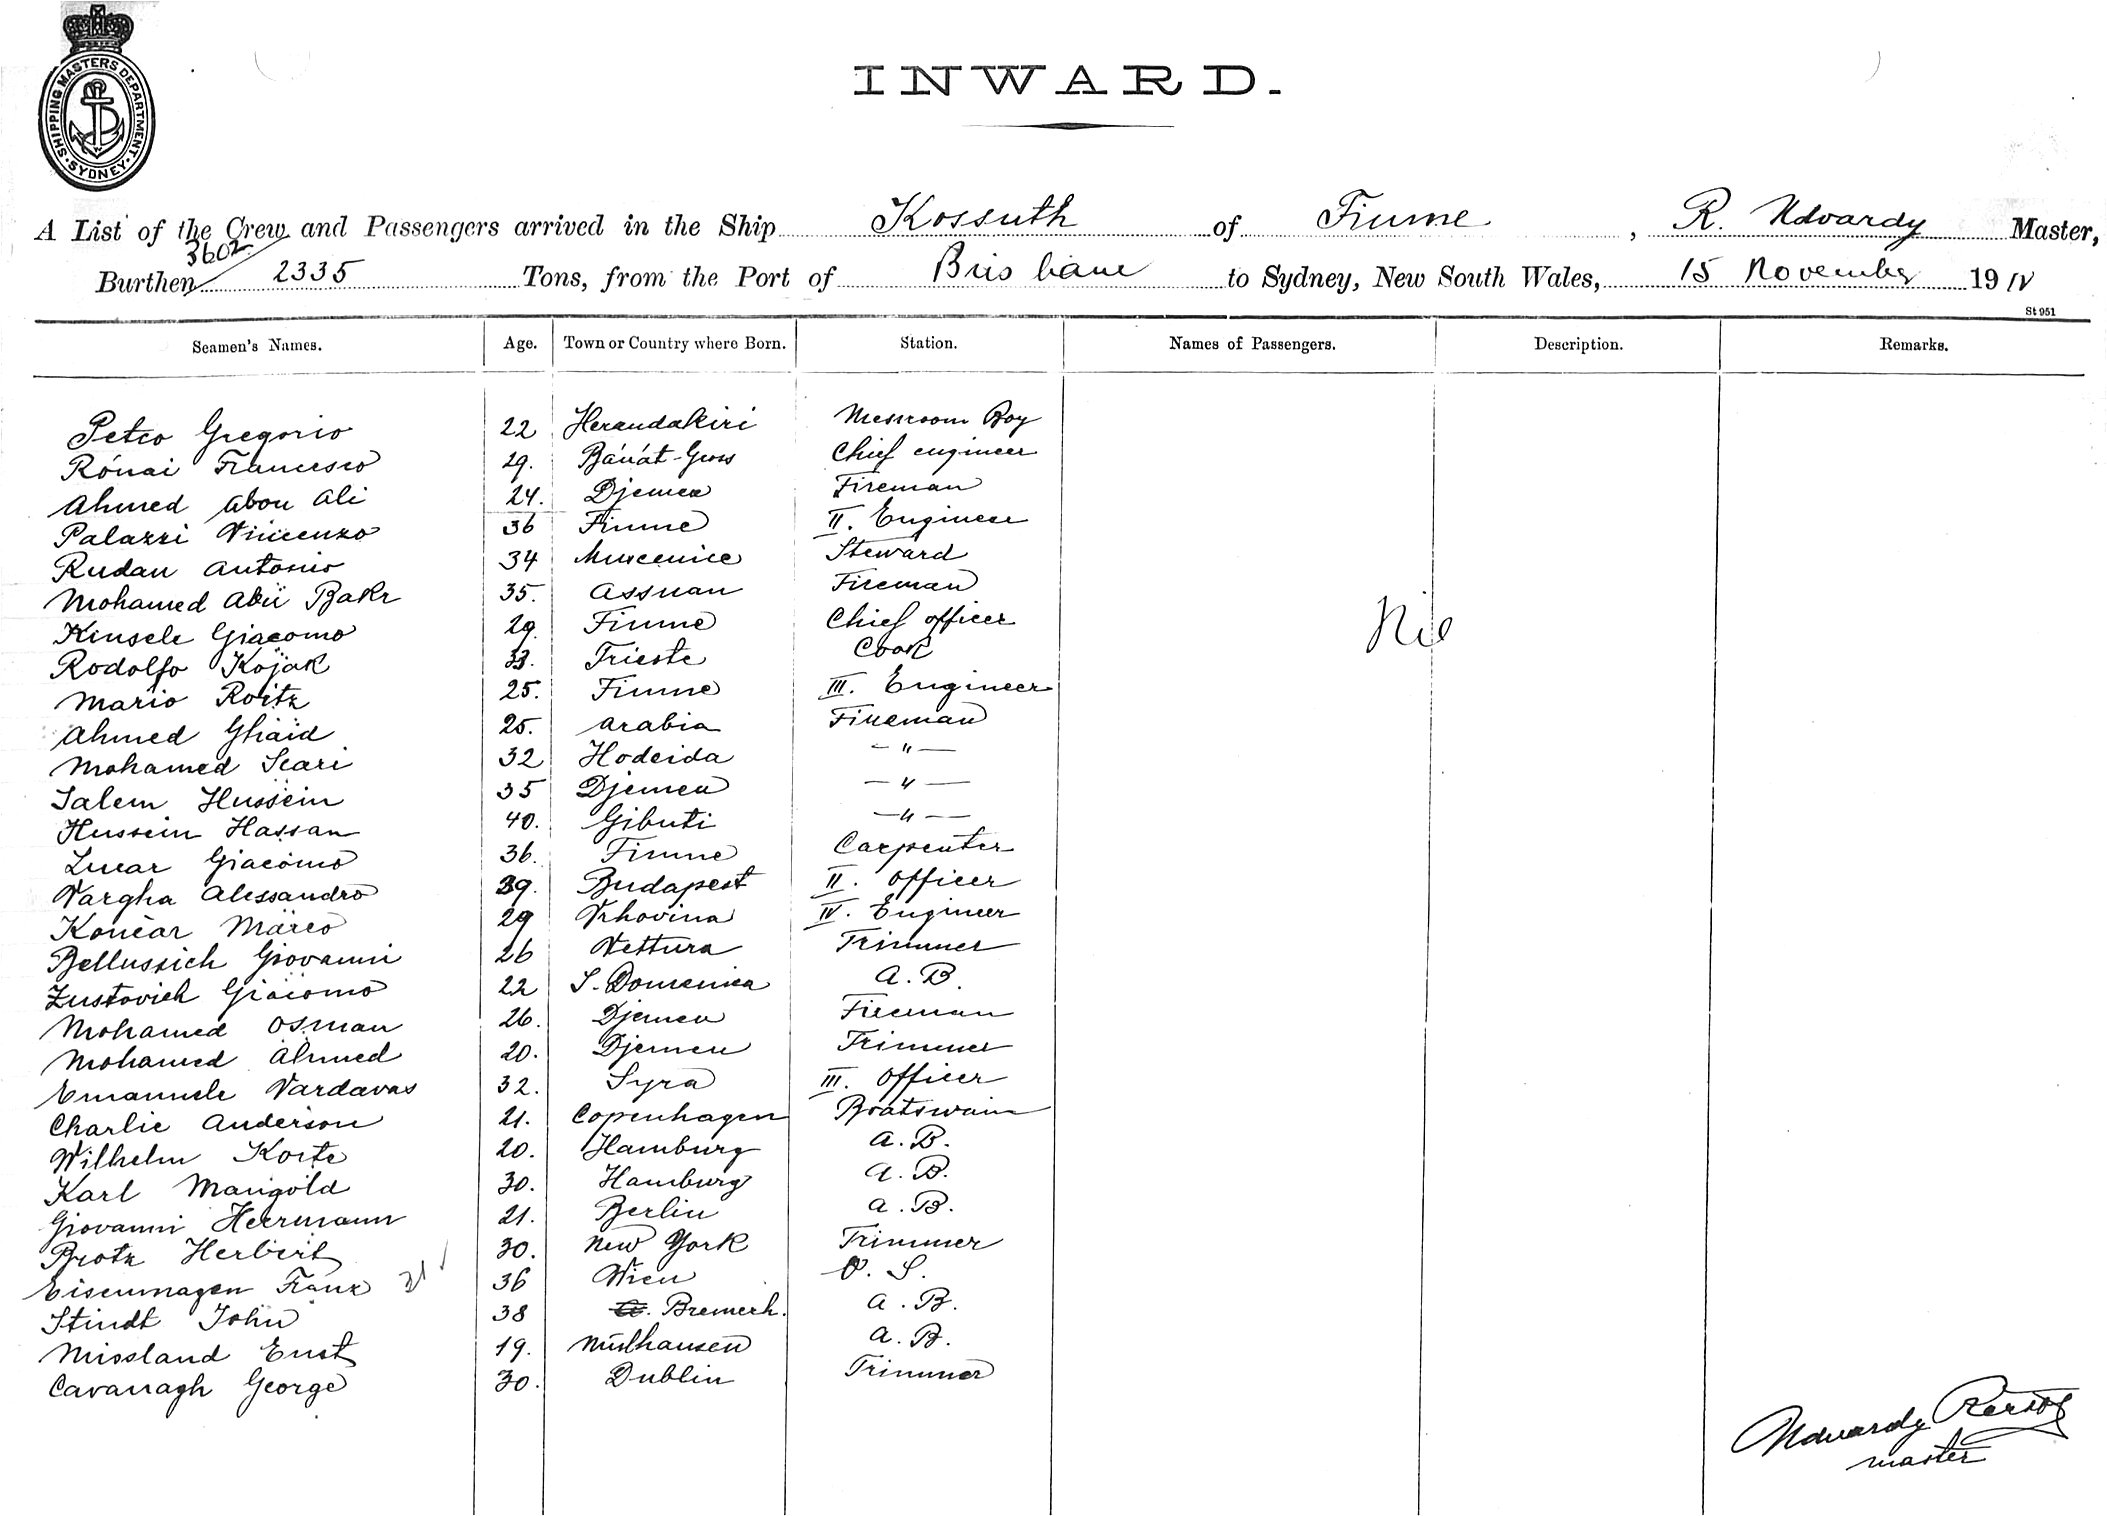 SHIPPING MASTERS DEPARTMENT. SYDNEY
INWARD.
A List of the Crew and Passengers arrived in the Ship Kossuth of Fiume, R. Udvardy Master,
3602
Burthen 2335 Tons, from the Port of Brisbane to Sydney, New South Wales, 15 November 19
St 951
Seamen's Names. Age. Town or Country where Born. Station. Names of Passengers. Description. Remarks.
Petco Gregorio 22 Herandakiri Messroom Boy
Rónai Francesco 29. Bánát-Gross Chief engineer
Ahmed Abou Ali 24. Djemen Fireman
Palazzi Vincenzo 36 Fiume II. Engineer
Rudan Antonio 34 Steward
Mohamed Abu Bakr 35. Assuan Fireman
Kinsele Giacomo 29. Fiume Chief officer
Rodolfo Kojak 33. Trieste Cook
Mario Roitz 25. Fiume III. Engineer
Ahmed Ghaid 25. Arabia Fireman
Mohamed Seari 32 Hodeida — " —
Salem Hussein 35 Djemen — " —
Hussein Hassan 40. Gibuti — " —
Giacomo 36. Fiume Carpenter
Vargha Alessandro 39. Budapest II. officer
Končar Marco 29 Vrhovina IV. Engineer
Bellussich Giovanni 26 Vettura Trimmer
Zustovich Giacomo 22 S. Domenica A.B.
Mohamed Osman 26. Djemen Fireman
Mohamed Ahmed 20. Djemen Trimmer
Emanuele Vardavas 32. Syra III. officer
Charlie Anderson 21. Copenhagen Boatswain
Wilhelm Korte 20. Hamburg A.B.
Karl Marigold 30. Hamburg A.B.
Giovanni Herrmann 21. Berlin A.B.
Brotz Herbert 30. New York Trimmer
Eisenmagen Franz 36 Wien O. S.
Stindt John 38 Bremerh. A.B.
Missland Enst 19. Mülhausen A.B.
Cavanagh George 30. Dublin Trimmer
Nil
Udvardy
master